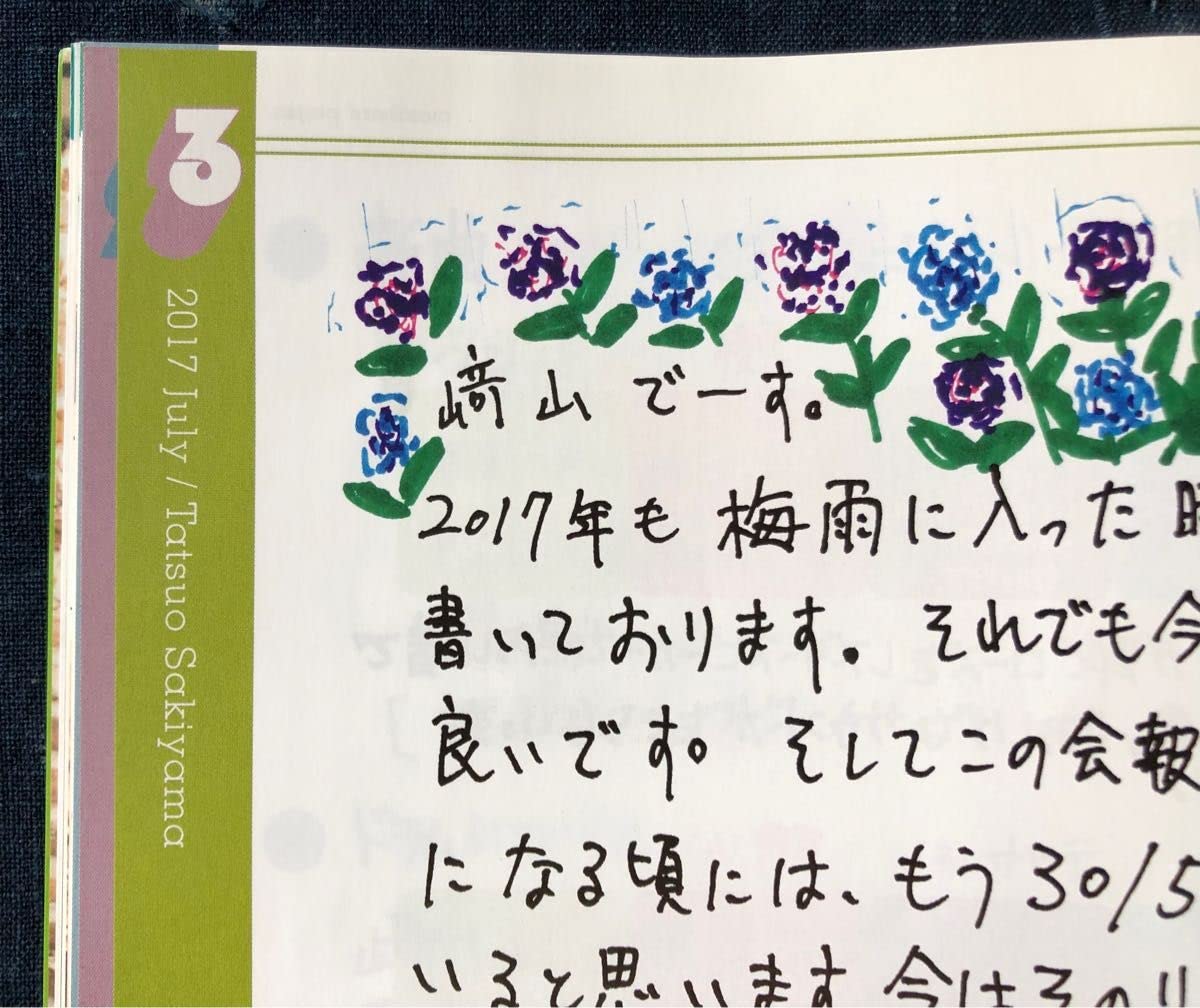 3
2017 July / Tatsuo Sakiyama
﨑山でーす。
2017年も梅雨に入った
書いております。それでも今
良いです。そしてこの会報
になる頃には、もう30/5
いると思います 今はその